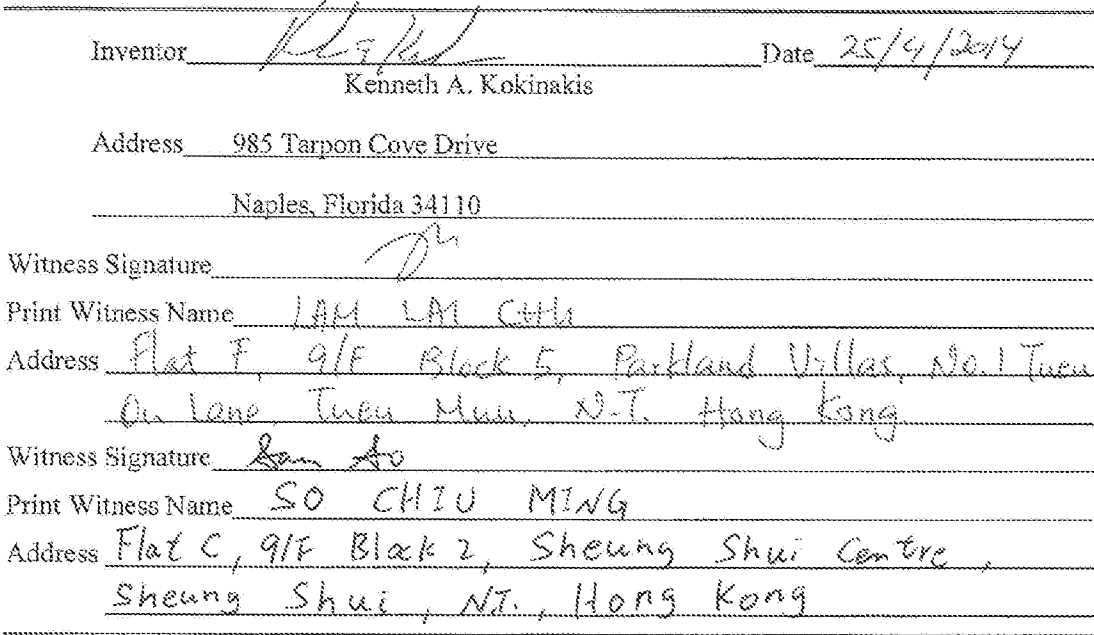 Inventor Date 25/4/2014
Kenneth A. Kokinakis
Address 985 Tarpon Cove Drive
Naples, Florida 34110
Witness Signature
Print Witness Name LAM LAI
Address Flat F, 9/F Block 5, Parkland Villas, No. 1 Tuen
On Lane Tuen Mun, N.T. Hong Kong
Witness Signature Sam So
Print Witness Name SO CHIU MING
Address Flat C, 9/F Block 2, Sheung Shui Centre,
Sheung Shui, N.T., Hong Kong